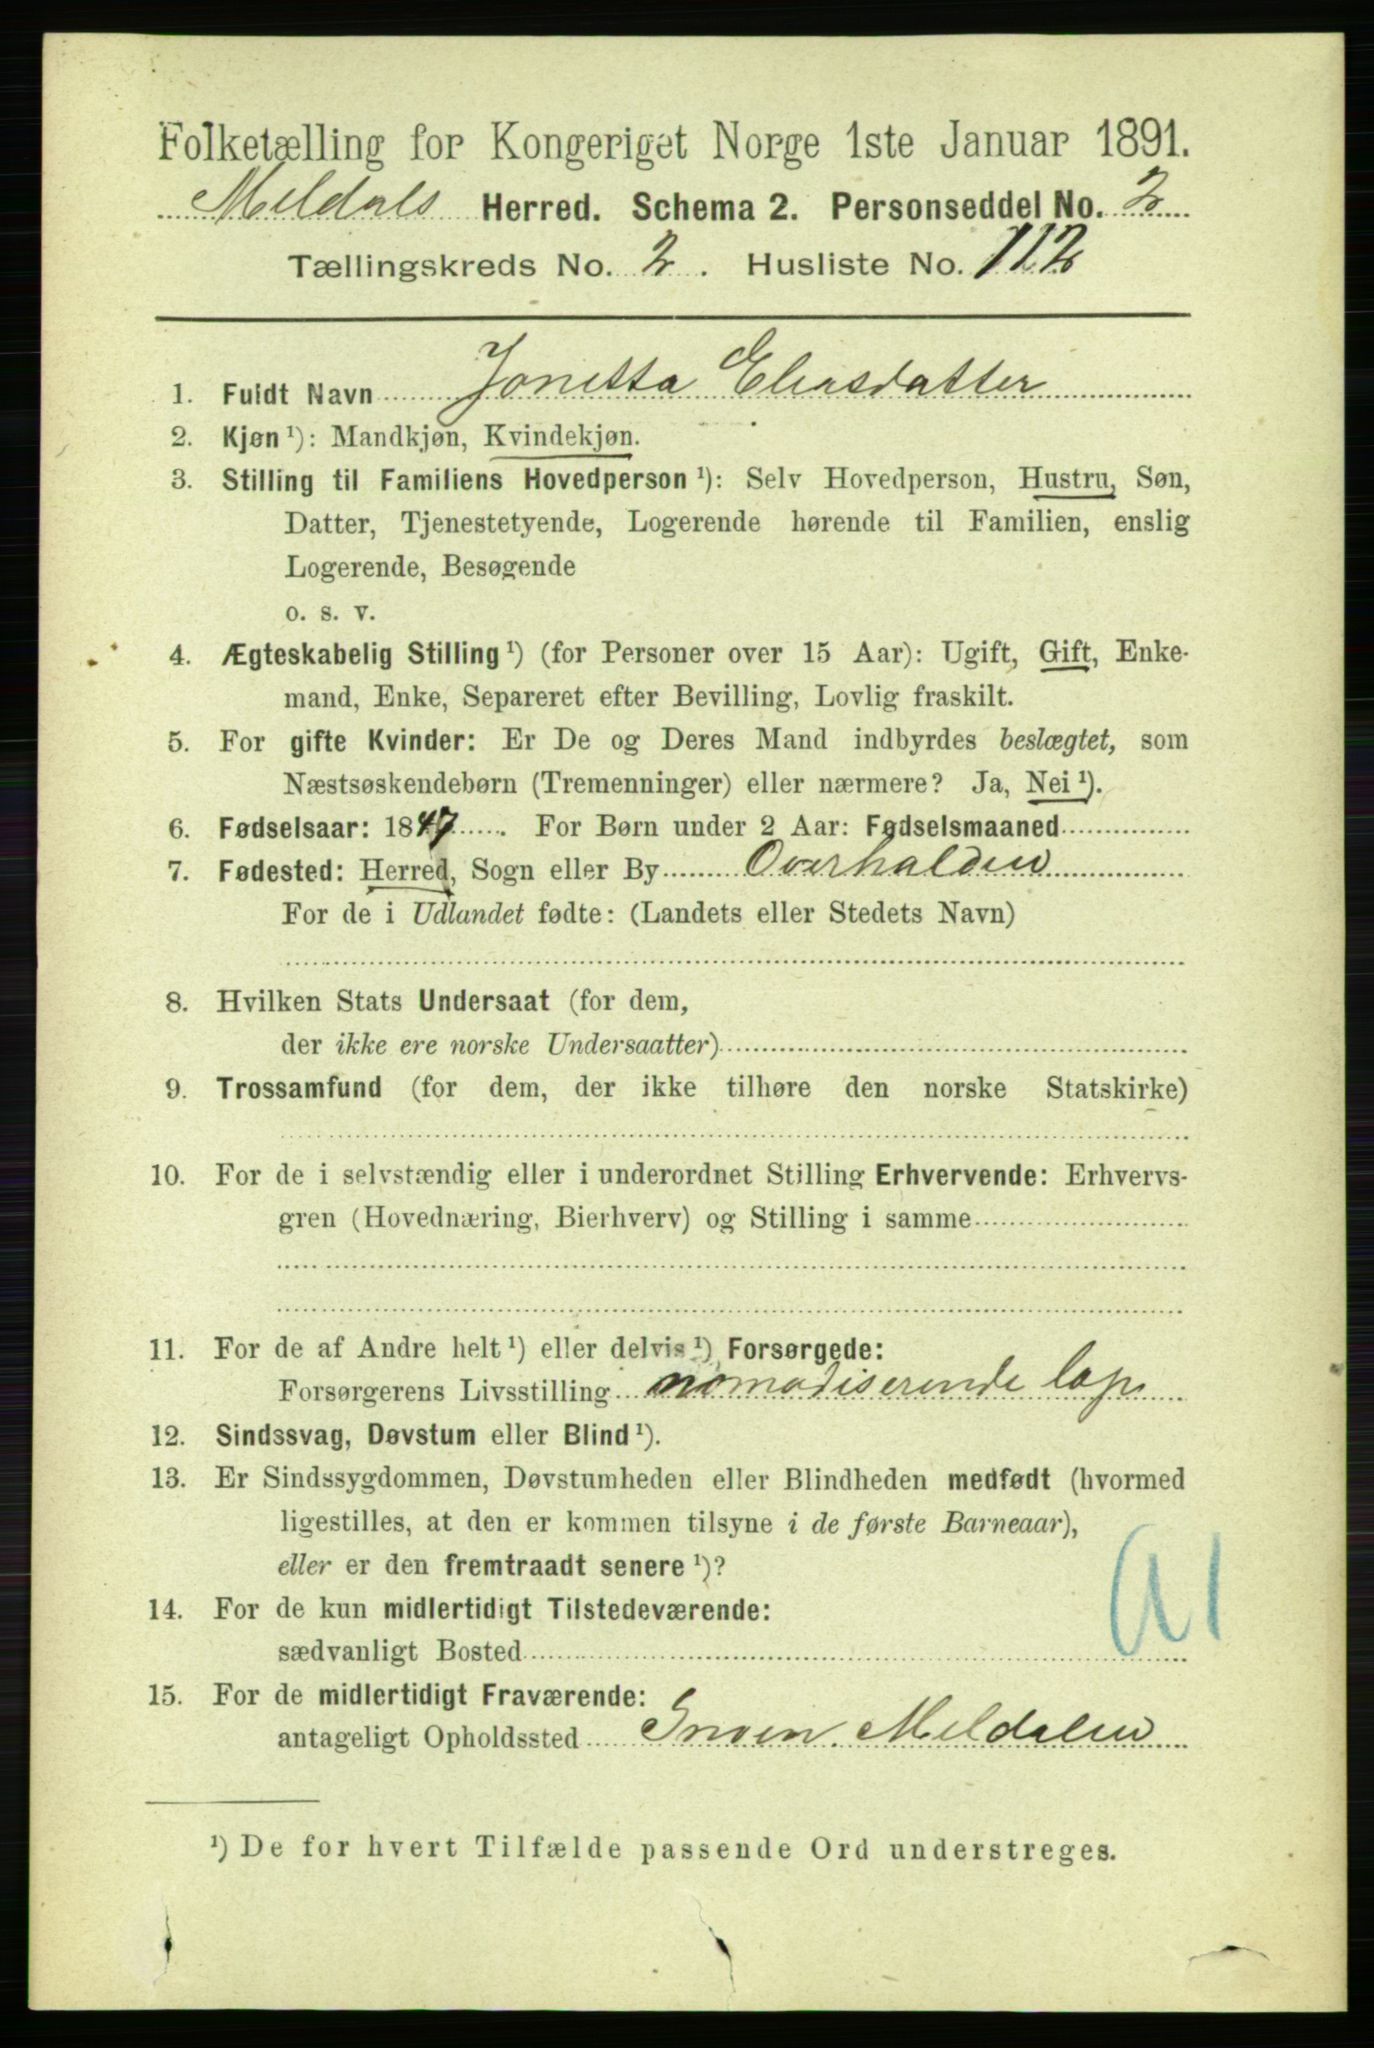 Folketælling for Kongeriget Norge 1ste Januar 1891.
Meldals Herred. Schema 2. Personseddel No. 2
Tællingskreds No. 2. Husliste No. 112
1. Fuldt Navn Jonetta Eliasdatter
2. Kjøn ¹): Mandkjøn, Kvindekjøn.
3. Stilling til Familiens Hovedperson ¹): Selv Hovedperson, Hustru, Søn,
Datter, Tjenestetyende, Logerende hørende til Familien, enslig
Logerende, Besøgende
o. s. v.
4. Ægteskabelig Stilling ¹) (for Personer over 15 Aar): Ugift, Gift, Enke-
mand, Enke, Separeret efter Bevilling, Lovlig fraskilt.
5. For gifte Kvinder: Er De og Deres Mand indbyrdes beslægtet, som
Næstsøskendebørn (Tremenninger) eller nærmere? Ja, Nei ¹).
6. Fødselsaar: 1847. For Børn under 2 Aar: Fødselsmaaned
7. Fødested: Herred, Sogn eller By Overhalden
For de i Udlandet fødte: (Landets eller Stedets Navn)
8. Hvilken Stats Undersaat (for dem,
der ikke ere norske Undersaatter)
9. Trossamfund (for dem, der ikke tilhøre den norske Statskirke)
10. For de i selvstændig eller i underordnet Stilling Erhvervende: Erhvervs-
gren (Hovednæring, Bierhverv) og Stilling i samme
11. For de af Andre helt ¹) eller delvis ¹) Forsørgede:
Forsørgerens Livsstilling nomadiserende lap
12. Sindssvag, Døvstum eller Blind ¹).
13. Er Sindssygdommen, Døvstumheden eller Blindheden medfødt (hvormed
ligestilles, at den er kommen tilsyne i de første Barneaar),
eller er den fremtraadt senere ¹)?
14. For de kun midlertidigt Tilstedeværende:
sædvanligt Bosted
15. For de midlertidigt Fraværende:
antageligt Opholdssted Meldalen
¹) De for hvert Tilfælde passende Ord understreges.